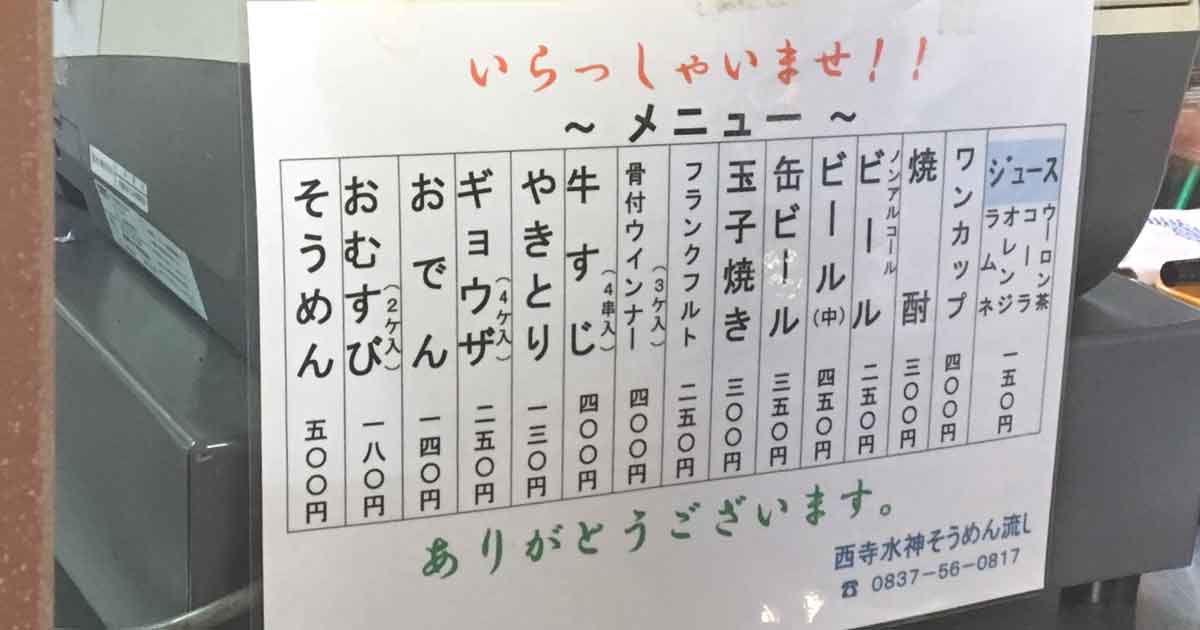 いらっしゃいませ!!
～ メニュー ～
ジュース
ウーロン茶
コーラ
オレンジ
ラムネ
一五〇円
ワンカップ 四〇〇円
焼酎 三〇〇円
ノンアルコール
ビール 二五〇円
ビール(中) 四五〇円
缶ビール 三五〇円
玉子焼き 三〇〇円
フランクフルト 二五〇円
骨付ウインナー(3ケ入) 四〇〇円
牛すじ(4串入) 四〇〇円
やきとり 一三〇円
ギョウザ(4ケ入) 二五〇円
おでん 一四〇円
おむすび(2ケ入) 一八〇円
そうめん 五〇〇円
ありがとうございます。
西寺水神そうめん流し
☎ 0837-56-0817